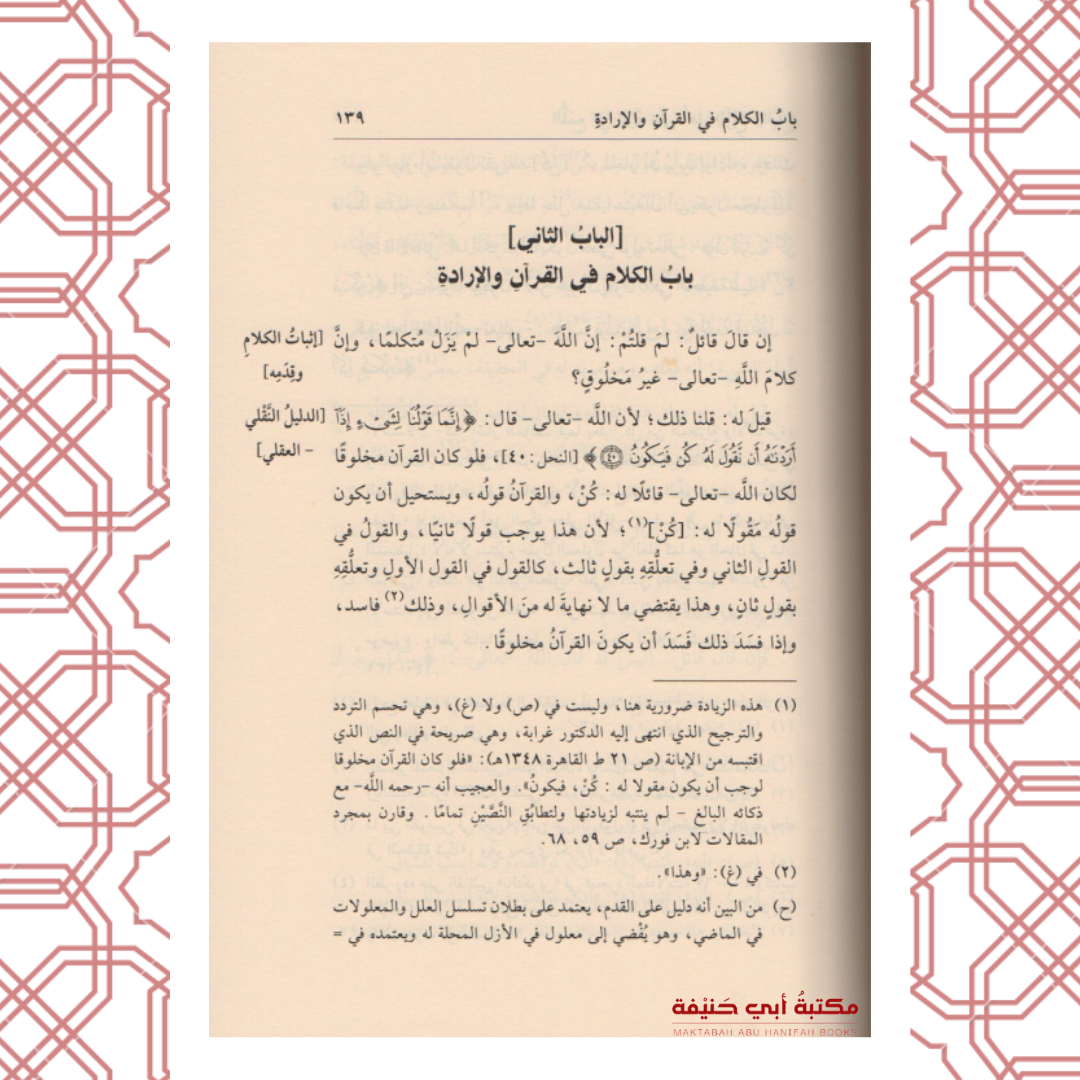 بابُ الكلام في القرآنِ والإرادةِ ١٣٩
[البابُ الثاني]
بابُ الكلام في القرآنِ والإرادةِ
إن قالَ قائلٌ: لمَ قلتُمْ: إنَّ اللَّهَ –تعالى– لمْ يَزَلْ مُتكلمًا، وإنَّ
[إثباتُ الكلامِ
كلامَ اللَّهِ –تعالى– غيرُ مَخلُوقٍ؟
وقِدَمِه]
قيلَ له: قلنا ذلك؛ لأن اللَّه –تعالى– قال: ﴿إِنَّمَا قَوْلُنَا لِشَىْءٍ إِذَآ
[الدليلُ النَّقْلي
أَرَدْنَٰهُ أَن نَّقُولَ لَهُۥ كُن فَيَكُونُ ۝٤٠﴾ [النحل:٤٠]، فلو كان القرآن مخلوقًا
– العقلي]
لكان اللَّه –تعالى– قائلًا له: كُنْ، والقرآنُ قولُه، ويستحيل أن يكون
قولُه مَقُولًا له: [كُنْ](١)؛ لأن هذا يوجب قولًا ثانيًا، والقولُ في
القولِ الثاني وفي تعلُّقِهِ بقولٍ ثالث، كالقول في القول الأولِ وتعلُّقِهِ
بقولٍ ثانٍ، وهذا يقتضي ما لا نهايةَ له منَ الأقوالِ، وذلك(٢) فاسد،
وإذا فسَدَ ذلك فَسَدَ أن يكونَ القرآنُ مخلوقًا.
(١) هذه الزيادة ضرورية هنا، وليست في (ص) ولا (غ)، وهي تحسم التردد
والترجيح الذي انتهى إليه الدكتور غرابة، وهي صريحة في النص الذي
اقتبسه من الإبانة (ص ٢١ ط القاهرة ١٣٤٨هـ): «فلو كان القرآن مخلوقا
لوجب أن يكون مقولا له : كُنْ، فيكونُ». والعجيب أنه –رحمه اللَّه– مع
ذكائه البالغ – لم ينتبه لزيادتها ولتطابُقِ النَّصَّيْنِ تمامًا. وقارن بمجرد
المقالات لابن فورك، ص ٥٩، ٦٨.
(٢) في (غ): «وهذا».
(ح) من البين أنه دليل على القدم، يعتمد على بطلان تسلسل العلل والمعلولات
في الماضي، وهو يُفْضي إلى معلول في الأزل المحلة له ويعتمده في =
مكتبةُ أبي حَنيْفة
MAKTABAH ABU HANIFAH BOOKS